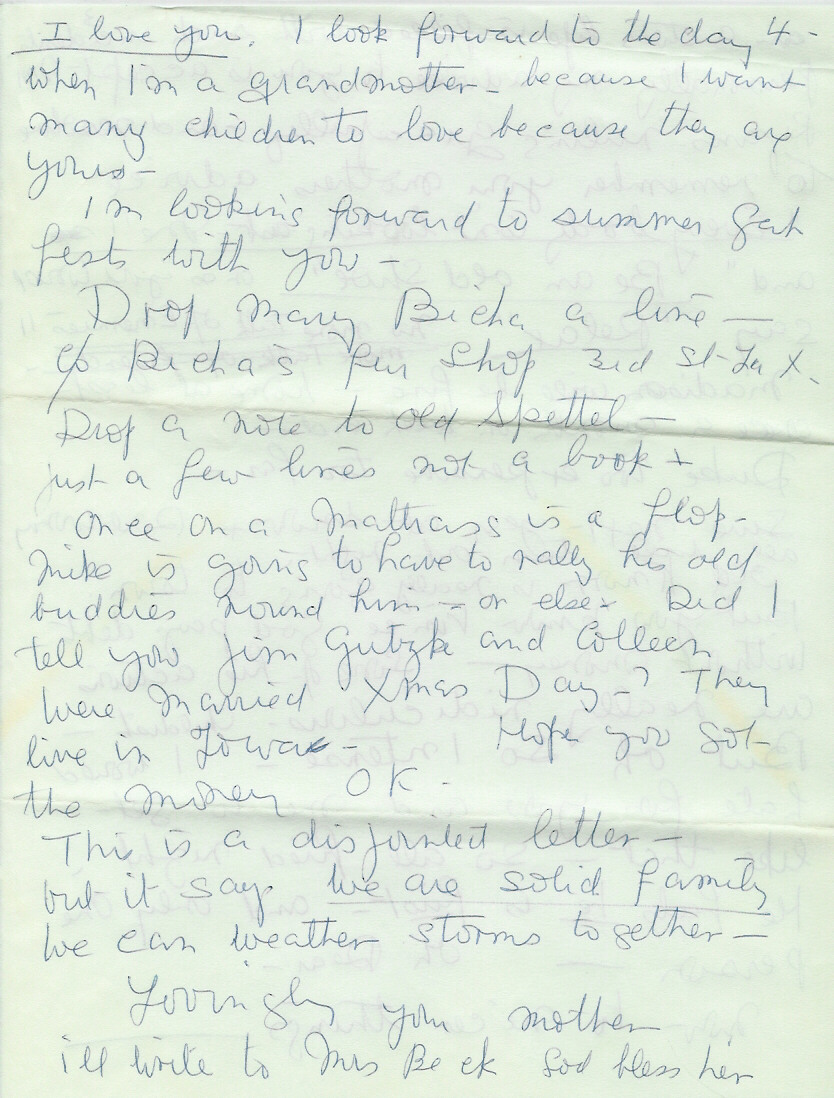 I love you. I look forward to the day 4-
when I'm a grandmother - because I want
many children to love because they are
yours -
I'm looking forward to summer gab
fests with you -
Drop Mary Bicha a line —
c/o Bicha's Fur Shop 3rd St - La X.
Drop a note to old Spettel —
just a few lines not a book +
once on a Mattrass is a flop -
Mike is going to have to rally his old
buddies round him - or else - Did I
tell you Jim Gutzke and Colleen
were married Xmas Day - ? They
live in Iowa - Hope you got
the money OK -
This is a disjointed letter -
but it says we are solid family
We can weather storms together —
Lovingly your mother
i'll write to Mrs Beck God bless her